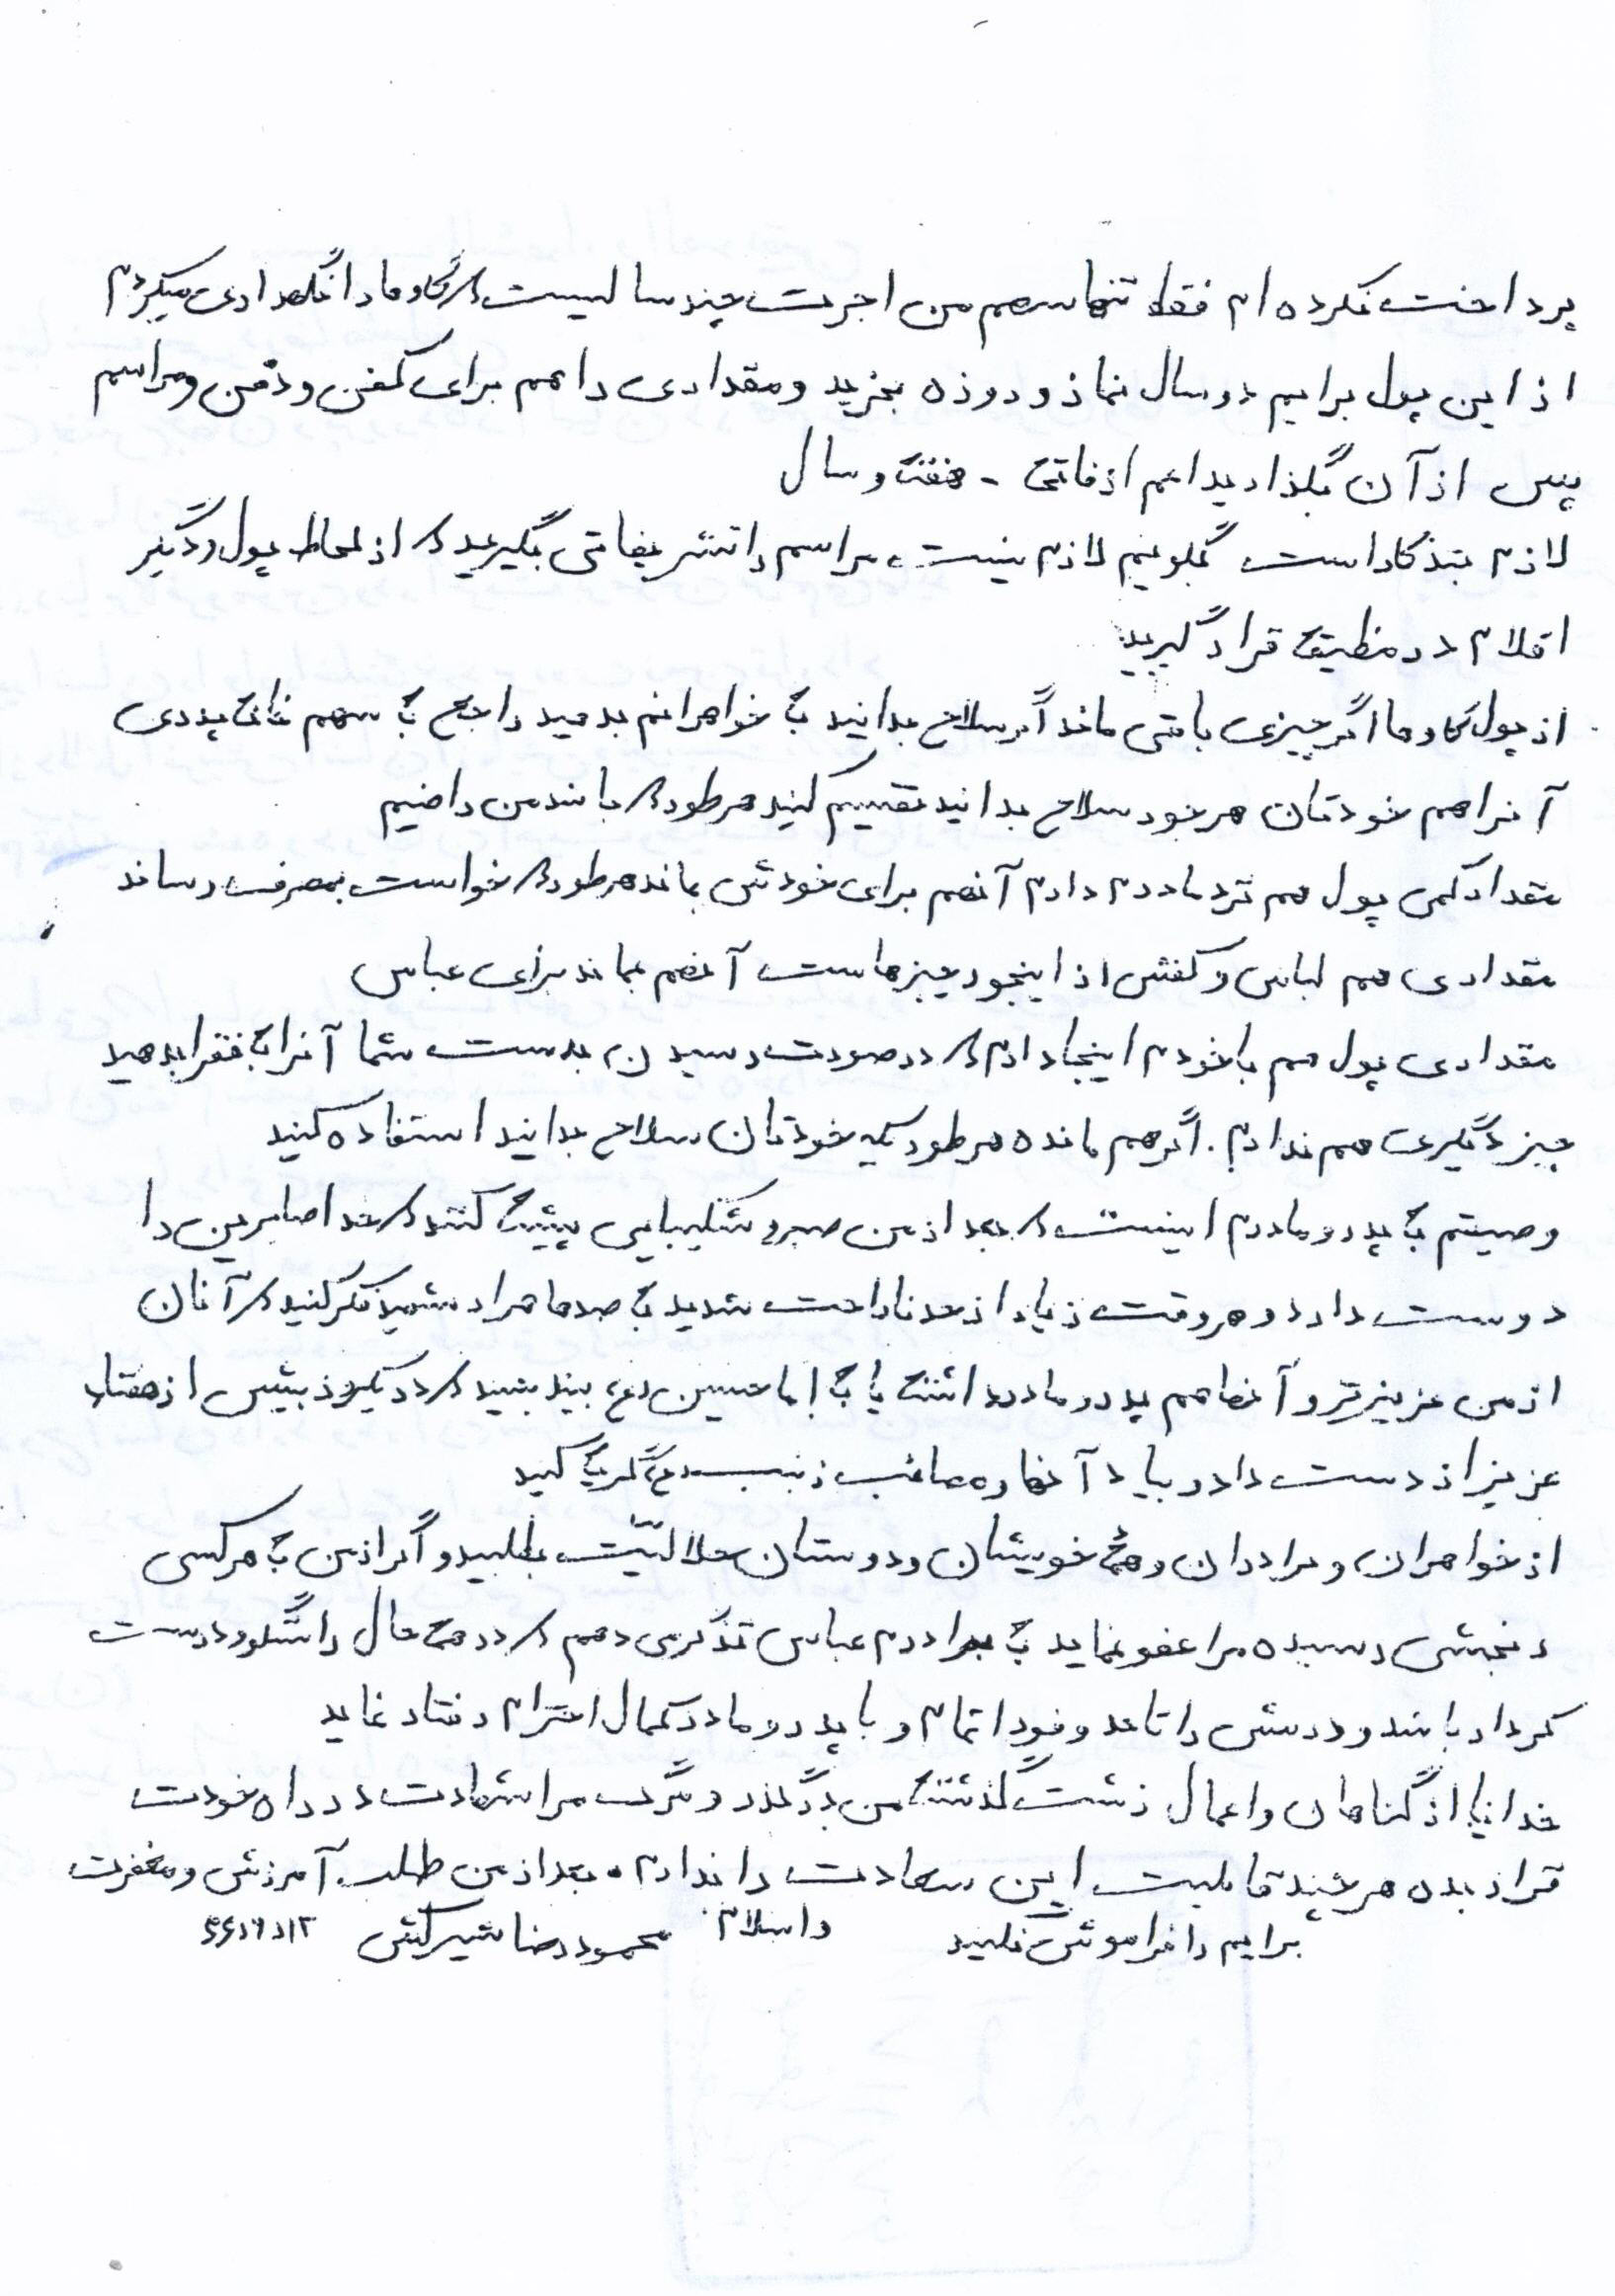 پرداخت نکرده ام فقط تنها سهم من اجرت چند سالیست که گاوها را نگهداری میکردم
از این پول برایم دو سال نماز و روزه بخرید و مقداری را هم برای کفن و دفن و مراسم
پس از آن بگذارید اعم از فاتحه - هفته و سال
لازم بتذکار است بگویم لازم نیست مراسم را تشریفاتی بگیرید که از لحاظ پول و دیگر
اقلام در مظیقه قرار گیرید
از پول گاوها اگر چیزی باقی ماند اگر سلاح بدانید به خواهرانم بدهید راجع به سهم خانه پدری
آنرا هم خودتان هر جور سلاح بدانید تقسیم کنید هر طور که باشد من راضیم
مقدار کمی پول هم نزد مادرم دارم آنهم برای خودش بماند هر طور که خواست بمصرف رساند
مقداری هم لباس و کفش از اینجور چیزهاست آنهم بماند برای عباس
مقداری پول هم با خودم اینجا دارم که در صورت رسیدن بدست شما آنرا به فقرا بدهید
چیز دیگری هم ندارم. اگر هم مانده هر طوریکه خودتان سلاح بدانید استفاده کنید
وصیتم به پدر و مادرم اینست که بعد از من صبر و شکیبایی پیشه کنند که خدا صابرین را
دوست دارد و هر وقت زیاد از حد ناراحت شدید به صدها هزار شهید فکر کنید که آنان
از من عزیزتر و آنها هم پدر و مادر داشته یا به امام حسین (ع) بیندیشید که در یکروز بیش از هفتاد
عزیز از دست داد و بیاد آنها و مصائب زینب (ع) گریه کنید
از خواهران و برادران و همه خویشان و دوستان حلالیّت بطلبید و اگر از من به هر کسی
رنجشی رسیده مرا عفو نماید به برادرم عباس تذکر می دهم که در همه حال راستگو و درست
کردار باشد و درسش را تا حد وفور اتمام و با پدر و مادر کمال احترام رفتار نماید
خدایا از گناهان و اعمال زشت گذشته من درگذر و مرگ مرا شهادت در راه خودت
قرار بده هر چند قابلیت این سعادت را ندارم. بعد از من طلب آمرزش و مغفرت
برایم را فراموش نکنید والسلام محمودرضا شیرکش